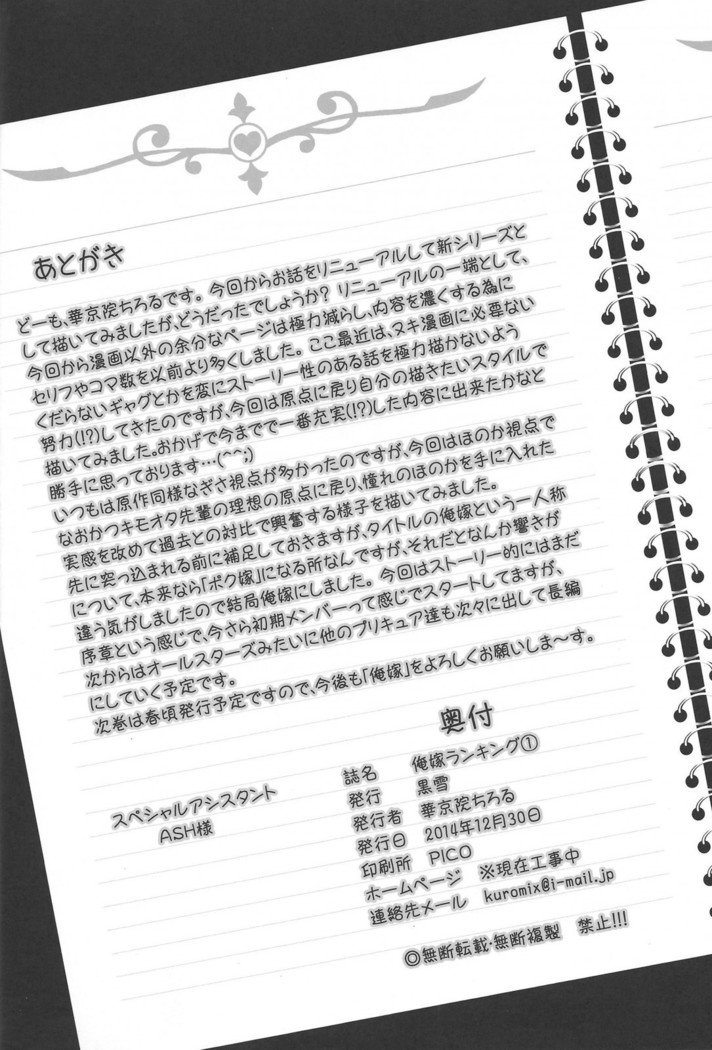 あとがき
どーも、華京院ちろるです。今回からお話をリニューアルして新シリーズと
して描いてみましたが、どうだったでしょうか？ リニューアルの一端として、
今回から漫画以外の余分なページは極力減らし、内容を濃くする為に
セリフやコマ数を以前より多くしました。ここ最近は、ヌキ漫画に必要ない
くだらないギャグとかを変にストーリー性のある話を極力描かないよう
努力(!?)してきたのですが、今回は原点に戻り自分の描きたいスタイルで
描いてみました。おかげで今までで一番充実(!?)した内容に出来たかなと
勝手に思っております…(^^;)
いつもは原作同様なぎさ視点が多かったのですが、今回はほのか視点で
なおかつキモオタ先輩の理想の原点に戻り、憧れのほのかを手に入れた
実感を改めて過去との対比で興奮する様子を描いてみました。
先に突っ込まれる前に補足しておきますが、タイトルの俺嫁という一人称
について、本来なら「ボク嫁」になる所なんですが、それだとなんか響きが
違う気がしましたので結局俺嫁にしました。今回はストーリー的にはまだ
序章という感じで、今さら初期メンバーって感じでスタートしてますが、
次からはオールスターズみたいに他のプリキュア達も次々に出して長編
にしていく予定です。
次巻は春頃発行予定ですので、今後も「俺嫁」をよろしくお願いしま～す。
スペシャルアシスタント
ASH様
奥付
誌名 俺嫁ランキング①
発行 黒雪
発行者 華京院ちろる
発行日 2014年12月30日
印刷所 PICO
ホームページ ※現在工事中
連絡先メール kuromix@i-mail.jp
◎無断転載・無断複製 禁止!!!